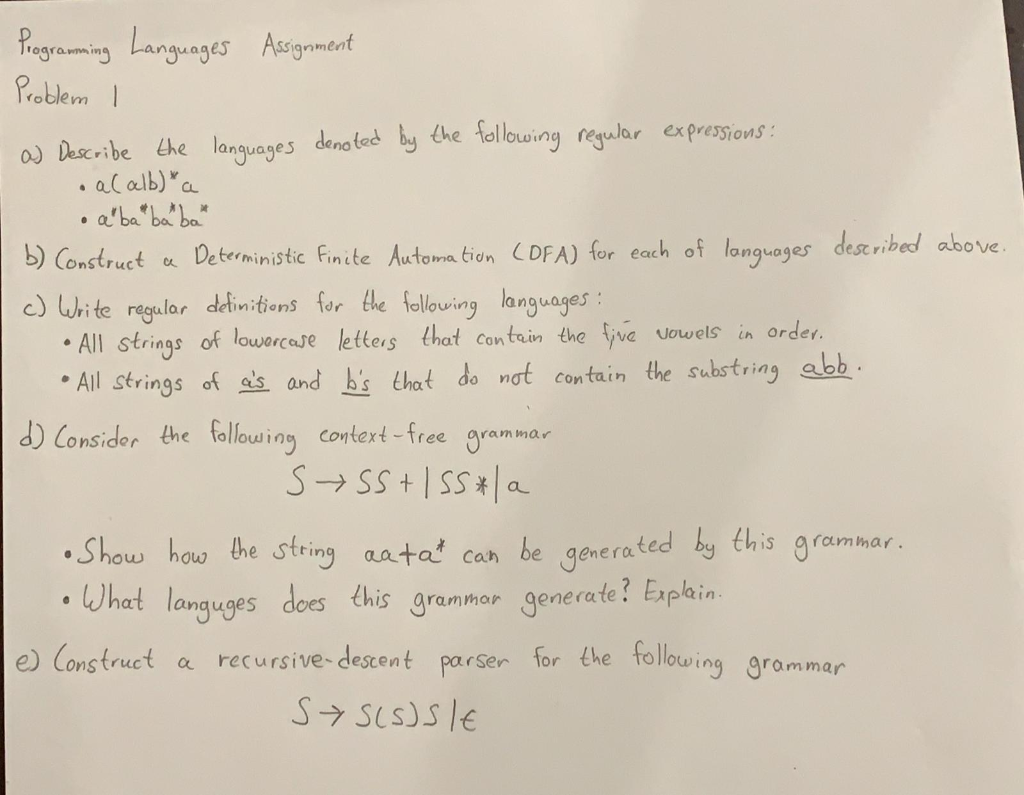 Programming Languages Assignment
Problem 1
a) Describe the languages denoted by the following regular expressions:
• a(a|b)*a
• a*ba*ba*ba*
b) Construct a Deterministic Finite Automation (DFA) for each of languages described above.
c) Write regular definitions for the following languages:
• All strings of lowercase letters that contain the five vowels in order.
• All strings of a's and b's that do not contain the substring abb.
d) Consider the following context-free grammar
S → SS + | SS * | a
• Show how the string aa+a* can be generated by this grammar.
• What languges does this grammar generate? Explain.
e) Construct a recursive-descent parser for the following grammar
S → S(S)S | ϵ